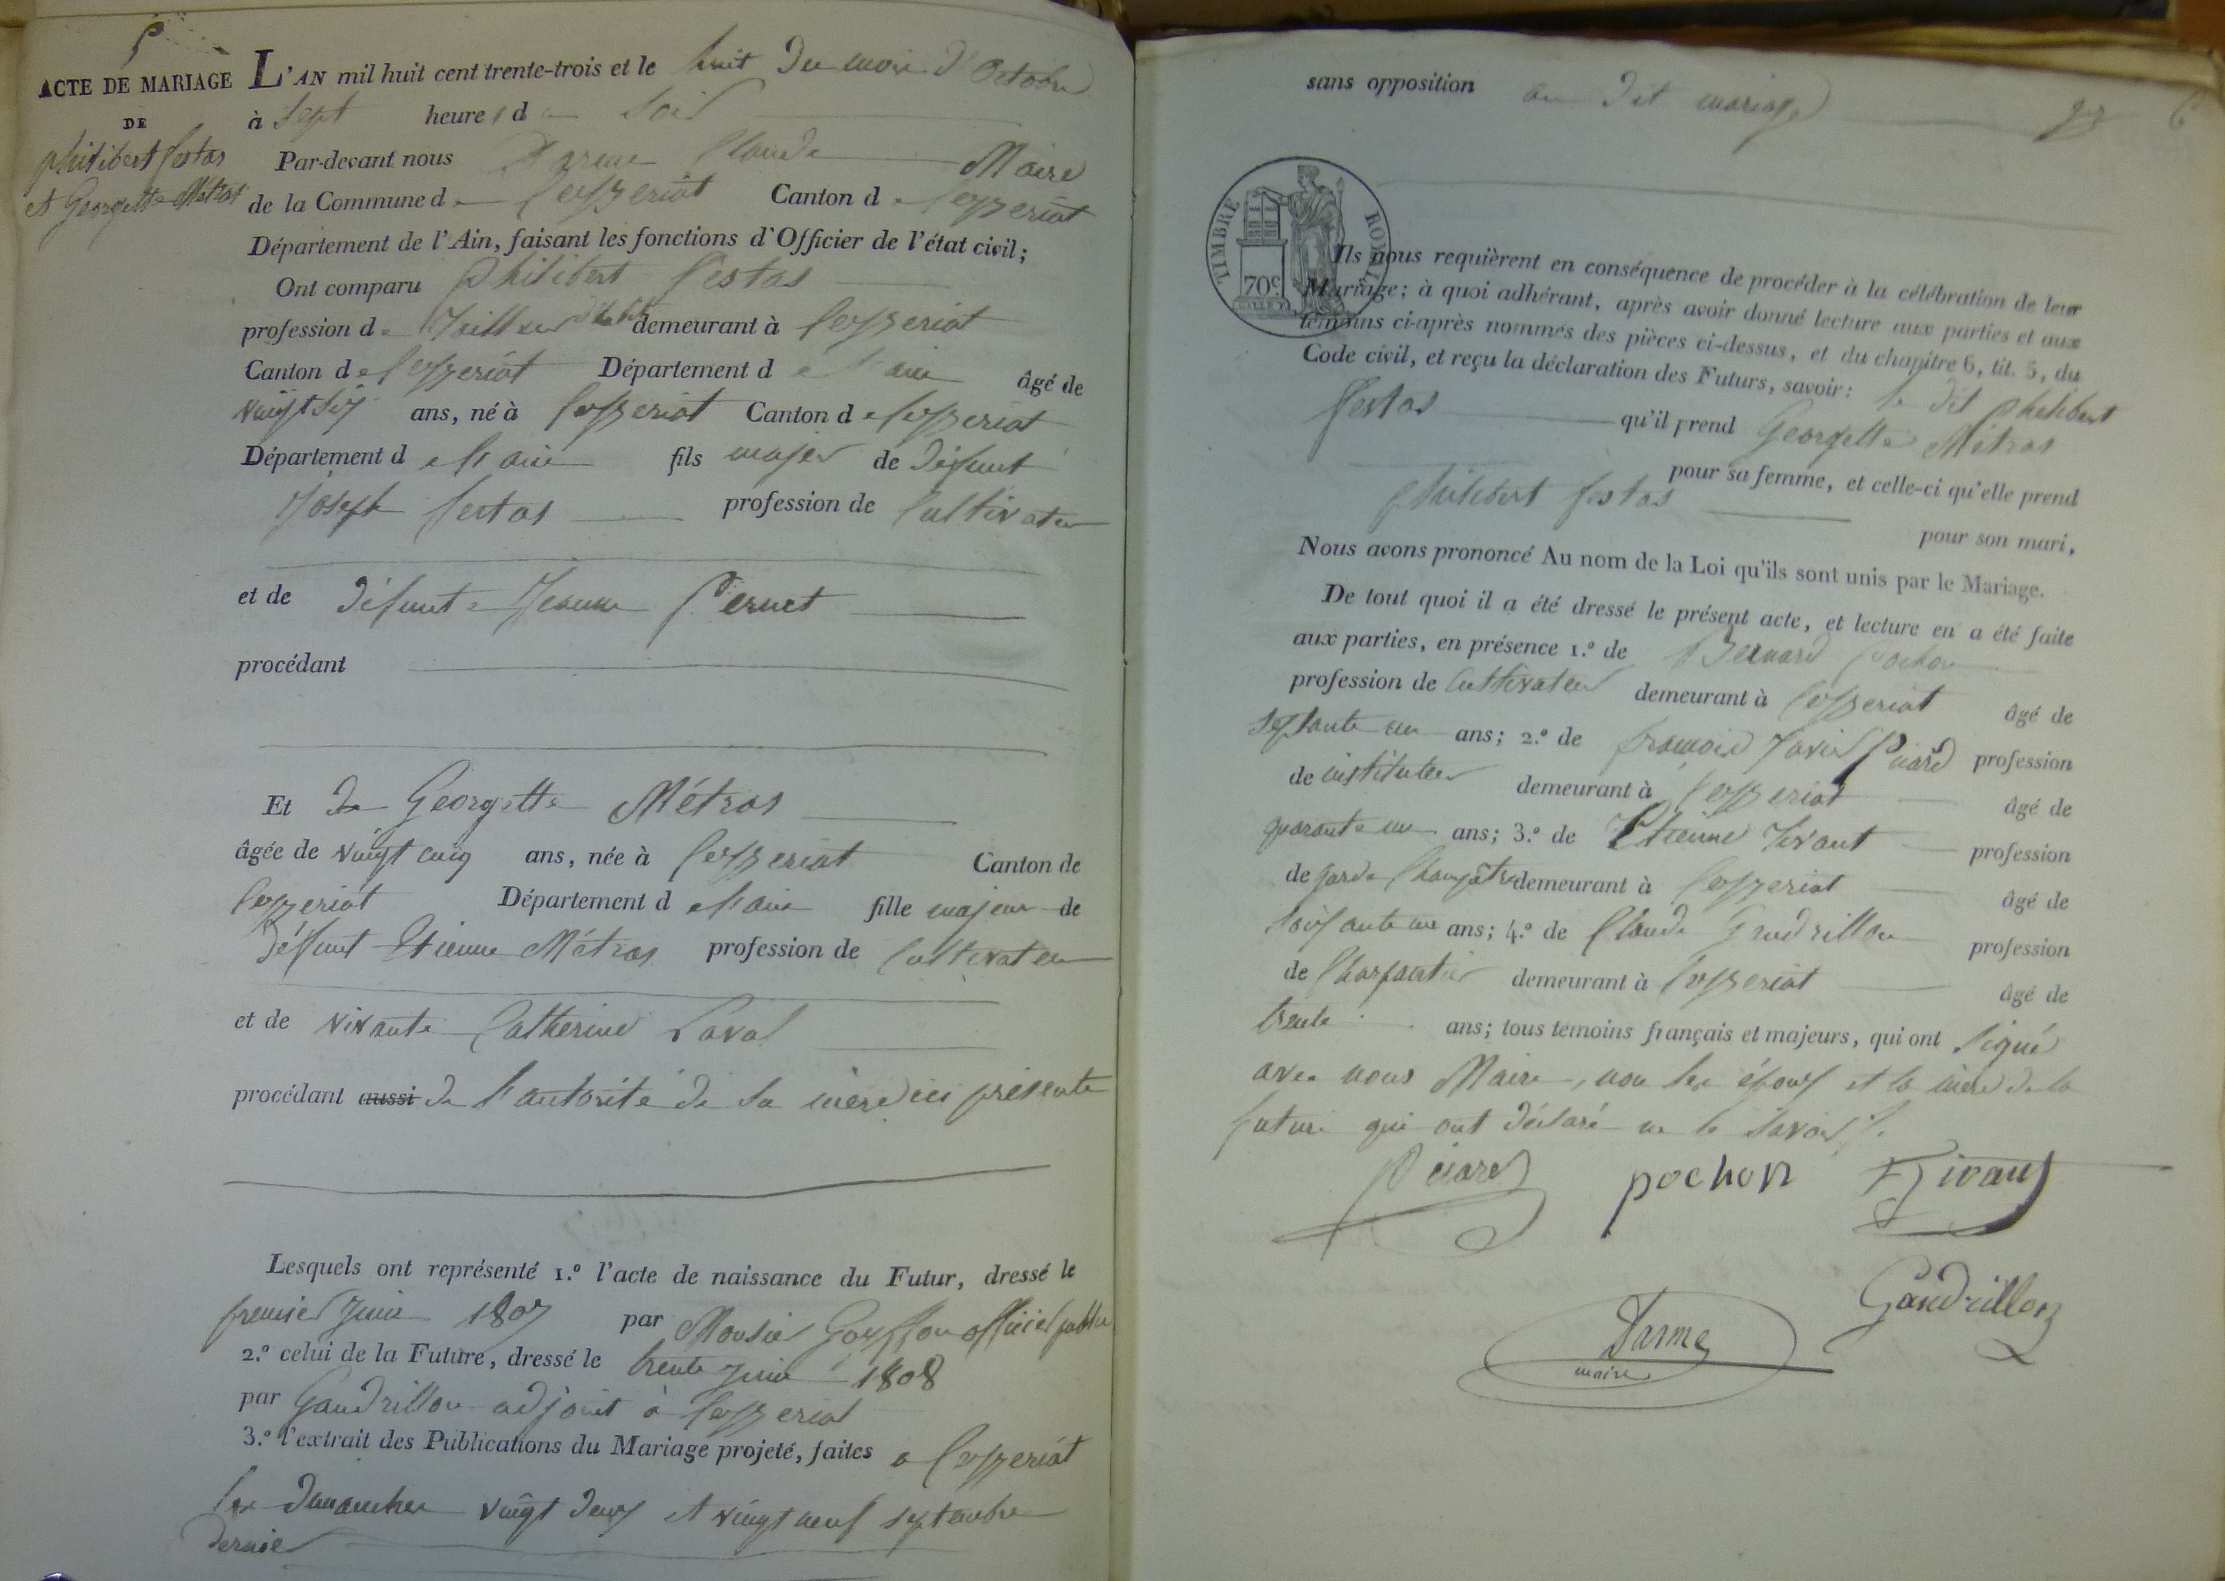 5
ACTE DE MARIAGE
DE
philibert festas
et Georgette Métras
L'AN mil huit cent trente-trois et le huit du mois d'Octobre
à sept heures du soir
Par-devant nous Darme Claude Maire
de la Commune de Ceyzeriat Canton de Ceyzeriat
Département de l'Ain, faisant les fonctions d'Officier de l'état civil;
Ont comparu Philibert festas
profession de Tailleur d'habits demeurant à Ceyzeriat
Canton de Ceyzeriat Département de l'ain âgé de
vingt six ans, né à Ceyzeriat Canton de Ceyzeriat
Département de l'ain fils majeur de défunt
Joseph festas profession de Cultivateur
et de défunte Jeanne Pernet
procédant
Et de Georgette Métras
âgée de vingt cinq ans, née à Ceyzeriat Canton de
Ceyzeriat Département de l'ain fille majeure de
défunt Etienne Métras profession de Cultivateur
et de vivante Catherine Laval
procédant aussi de l'autorité de sa mère ici présente
Lesquels ont représenté 1.º l'acte de naissance du Futur, dressé le
premier Juin 1807 par Monsieur Goyffon officier public
2.º celui de la Future, dressé le trente Juin 1808
par Gaudrillon adjoint à Ceyzeriat
3.º l'extrait des Publications du Mariage projeté, faites à Ceyzeriat
les dimanches vingt deux et vingt neuf septembre
dernier
sans opposition au dit mariage
6
TIMBRE ROYAL
70c
Ils nous requièrent en conséquence de procéder à la célébration de leur
Mariage; à quoi adhérant, après avoir donné lecture aux parties et aux
témoins ci-après nommés des pièces ci-dessus, et du chapitre 6, tit. 5, du
Code civil, et reçu la déclaration des Futurs, savoir: le dit Philibert
festas qu'il prend Georgette Métras
pour sa femme, et celle-ci qu'elle prend
philibert festas pour son mari,
Nous avons prononcé Au nom de la Loi qu'ils sont unis par le Mariage.
De tout quoi il a été dressé le présent acte, et lecture en a été faite
aux parties, en présence 1.º de Bernard Pochon
profession de Cultivateur demeurant à Ceyzeriat âgé de
septante un ans; 2.º de françois Xavier Picard profession
de instituteur demeurant à Ceyzeriat âgé de
quarante un ans; 3.º de Etienne Tivant profession
de garde Champêtre demeurant à Ceyzeriat âgé de
soixante un ans; 4.º de Claude Gaudrillon profession
de Charpentier demeurant à Ceyzeriat âgé de
trente ans; tous témoins français et majeurs, qui ont signé
avec nous Maire, non les époux et la mère de la
future qui ont déclaré ne le savoir.
pochon
Gaudrillon
Darme
maire